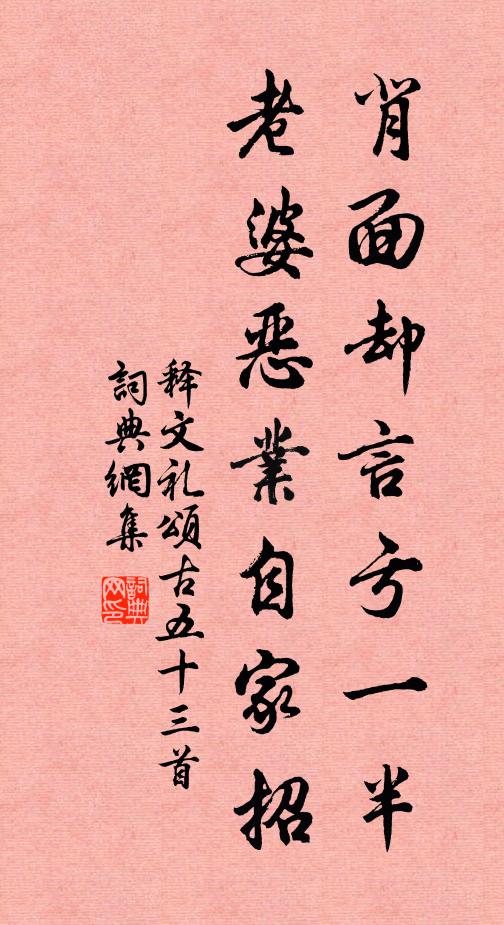 肖面却言亏一半
老婆恶業自家招
释文礼頌古五十三首
詞典網集
詞典网印